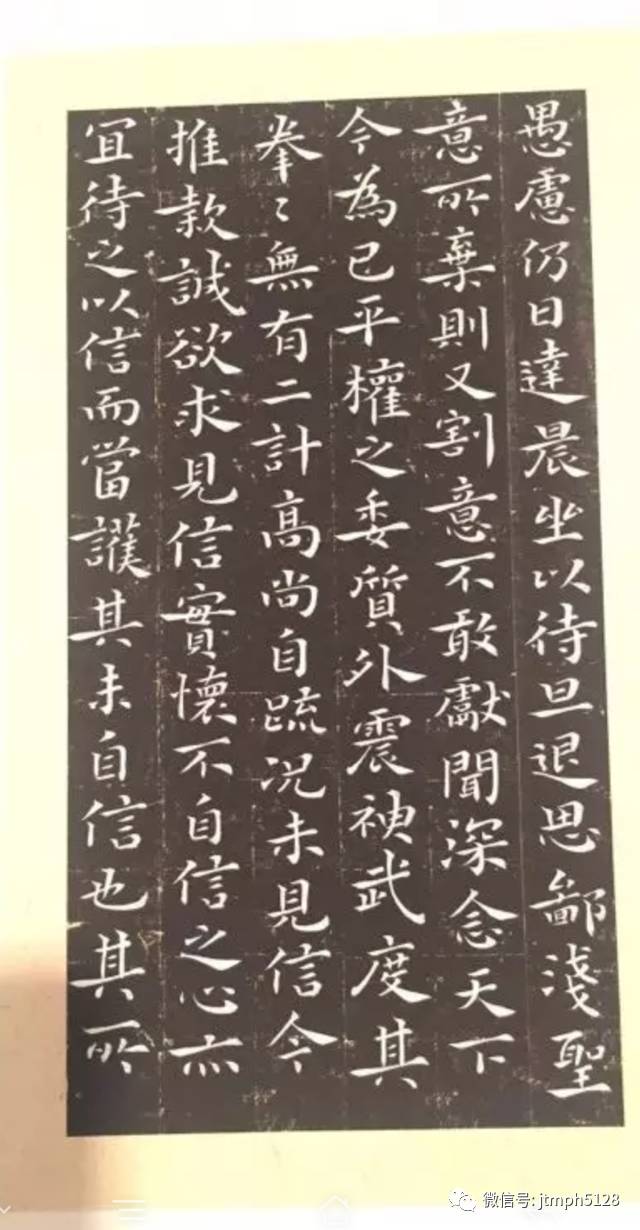 愚慮仍日達晨坐以待旦退思鄙淺聖
意所棄則又割意不敢獻聞深念天下
今為已平權之委質外震神武度其
拳〻無有二計高尚自疏況未見信今
推款誠欲求見信實懷不自信之心亦
宜待之以信而當護其未自信也其所
微信号: jtmph5128